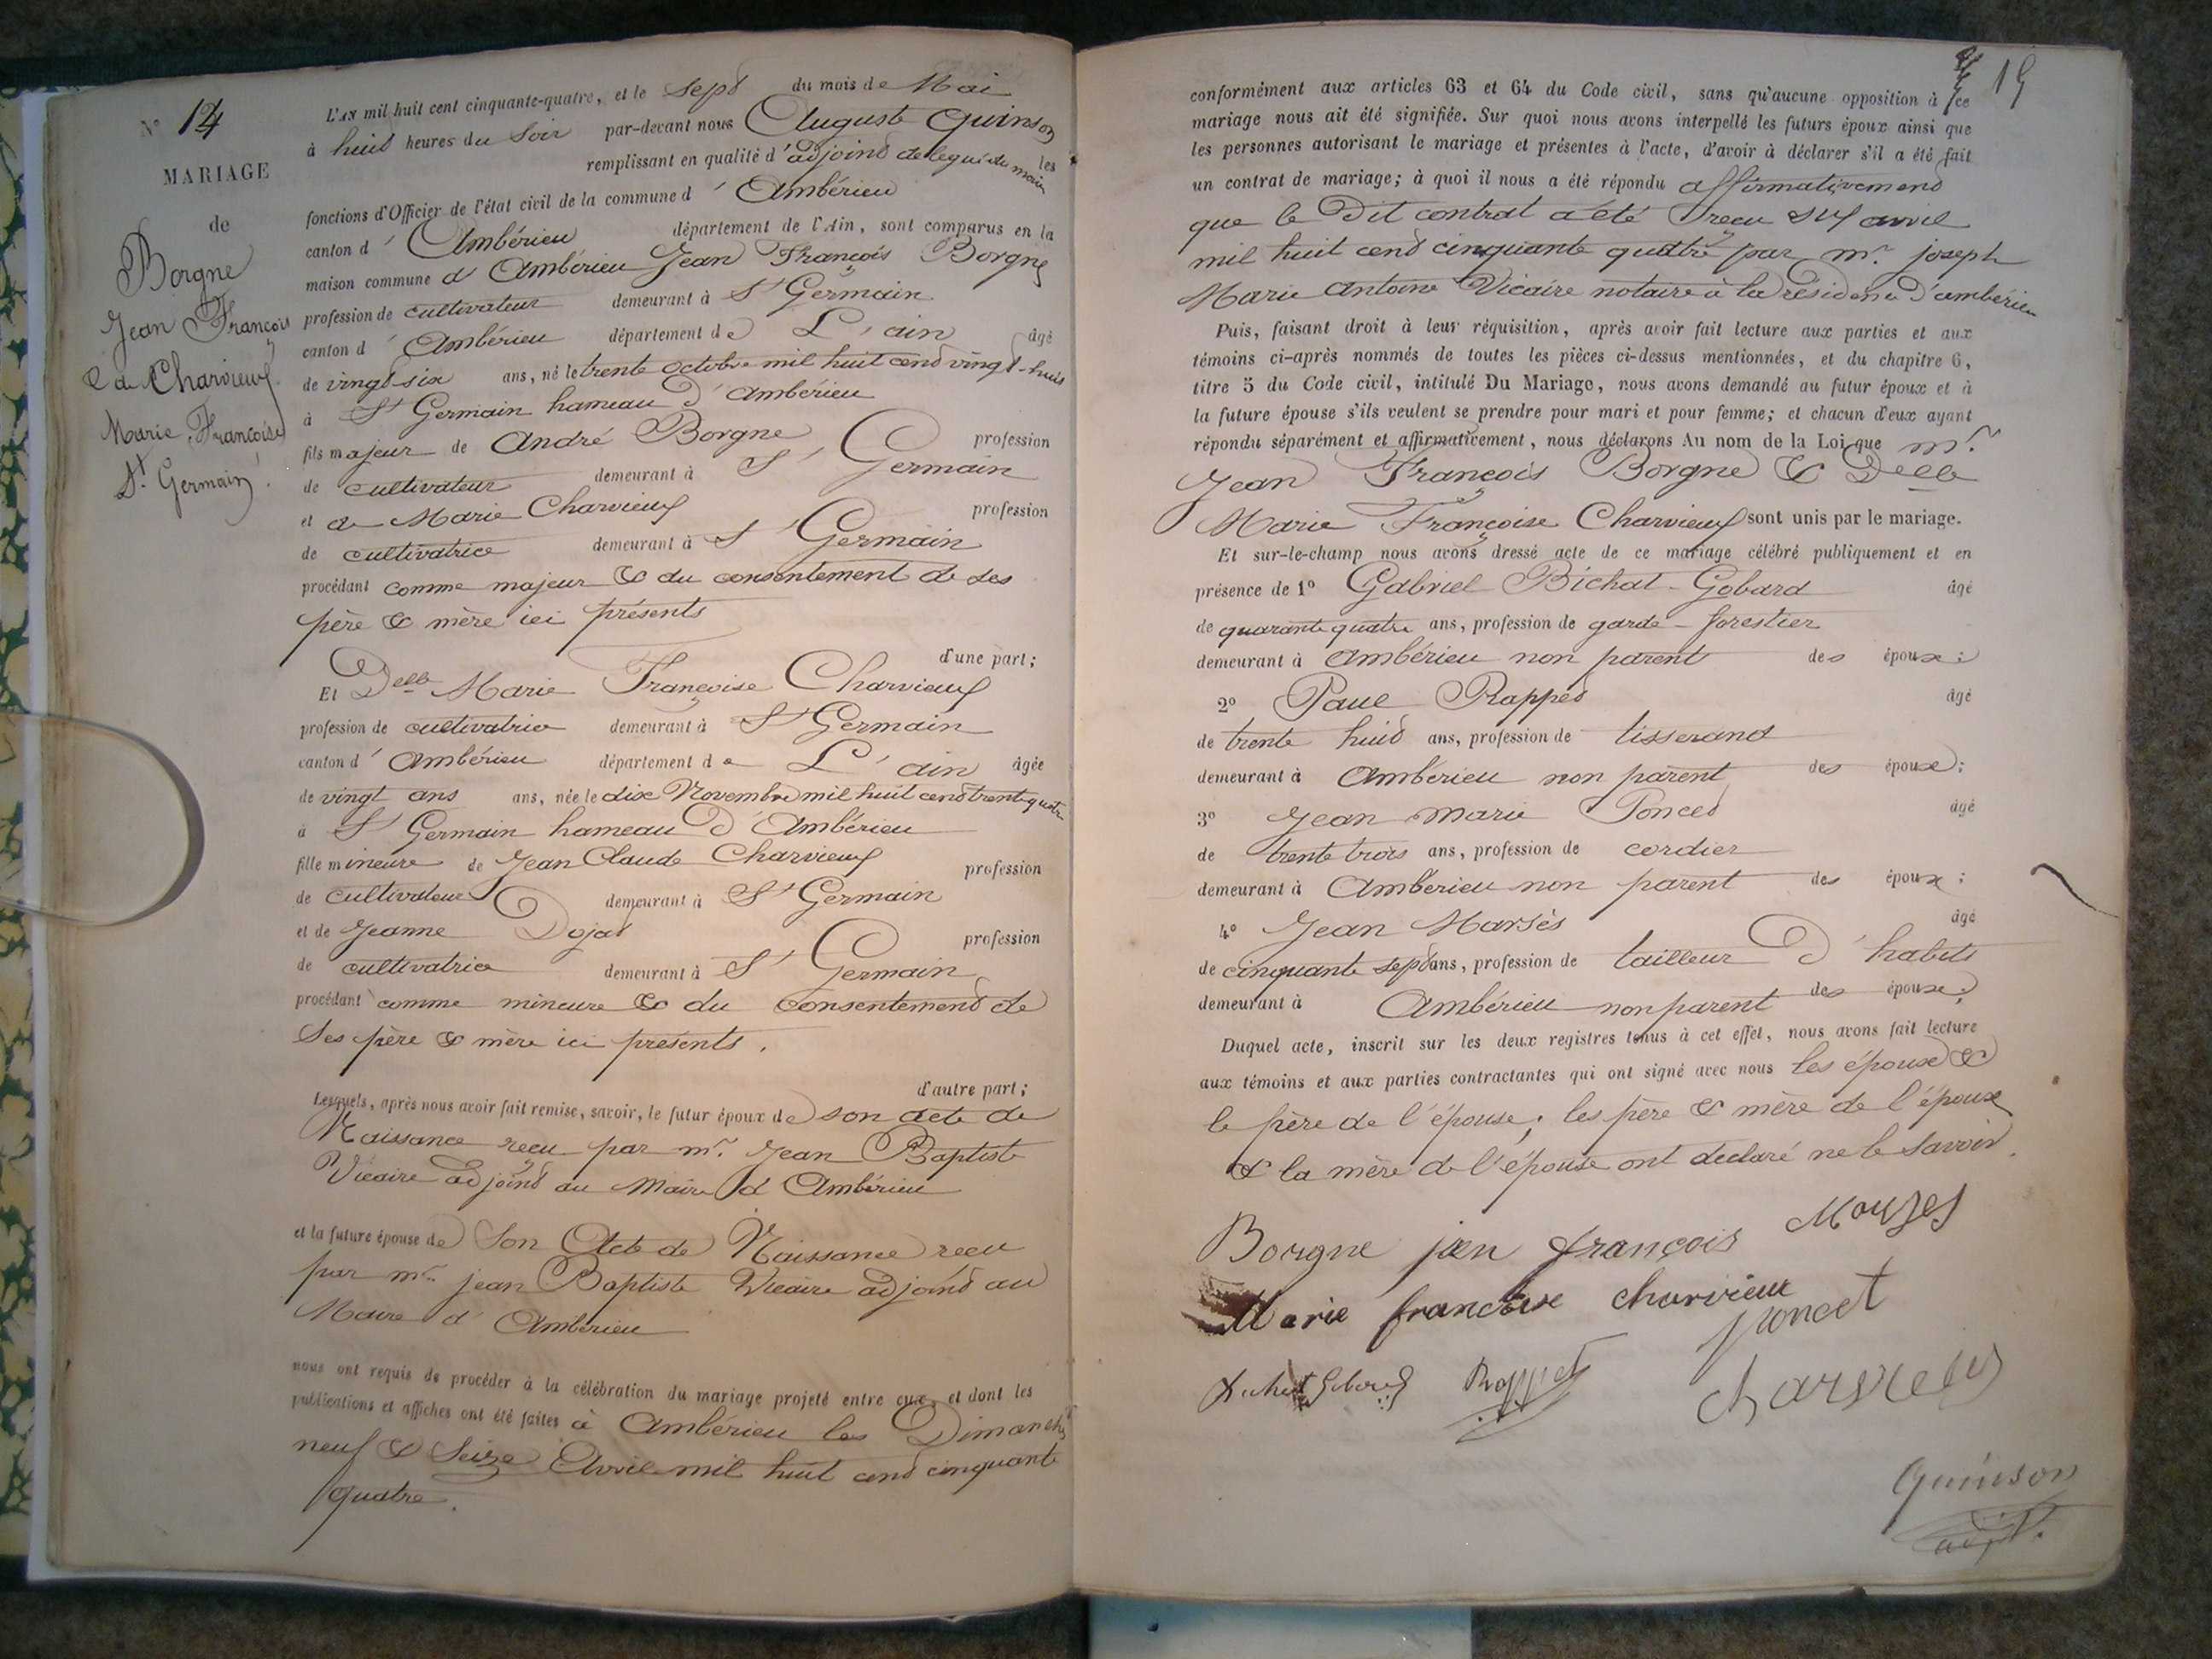 N° 14
MARIAGE
de
Borgne
Jean François
& de Charvieux
Marie Françoise
St Germain
L'AN mil huit cent cinquante-quatre, et le sept du mois de Mai
à huit heures du soir par-devant nous Auguste Quinson
remplissant en qualité d'adjoint délégué du maire les
fonctions d'Officier de l'état civil de la commune d'Ambérieu
canton d'Ambérieu département de l'Ain, sont comparus en la
maison commune d'Ambérieu Jean François Borgne
profession de cultivateur demeurant à St Germain
canton d'Ambérieu département de L'ain âgé
de vingt-six ans, né le trente octobre mil huit cent vingt-huit
à St Germain hameau d'ambérieu
fils majeur de André Borgne profession
de cultivateur demeurant à St Germain
et de Marie Charvieux profession
de cultivatrice demeurant à St Germain
procédant comme majeur & du consentement de ses
père & mère ici présents
d'une part;
Et Delle Marie Françoise Charvieux
profession de cultivatrice demeurant à St Germain
canton d'Ambérieu département de L'ain âgée
de vingt ans ans, née le dix Novembre mil huit cent trente quatre
à St Germain hameau d'Ambérieu
fille mineure de Jean Claude Charvieux profession
de cultivateur demeurant à St Germain
et de Jeanne Dojat profession
de cultivatrice demeurant à St Germain
procédant comme mineure & du consentement de
ses père & mère ici présents.
d'autre part;
Lesquels, après nous avoir fait remise, savoir, le futur époux de son acte de
Naissance reçu par mr. Jean Baptiste
Vicaire adjoint au Maire d'Ambérieu
et la future épouse de Son Acte de Naissance reçu
par mr. jean Baptiste Vicaire adjoint au
Maire d'Ambérieu
nous ont requis de procéder à la célébration du mariage projeté entre eux, et dont les
publications et affiches ont été faites à Ambérieu les Dimanches
neuf & Seize Avril mil huit cent cinquante
quatre.
19
conformément aux articles 63 et 64 du Code civil, sans qu'aucune opposition à ce
mariage nous ait été signifiée. Sur quoi nous avons interpellé les futurs époux ainsi que
les personnes autorisant le mariage et présentes à l'acte, d'avoir à déclarer s'il a été fait
un contrat de mariage; à quoi il nous a été répondu affirmativement
que le Dit contrat a été reçu avril
mil huit cent cinquante quatre par mr. joseph
Marie antoine Vicaire notaire à la résidence d'ambérieu
Puis, faisant droit à leur réquisition, après avoir fait lecture aux parties et aux
témoins ci-après nommés de toutes les pièces ci-dessus mentionnées, et du chapitre 6,
titre 5 du Code civil, intitulé Du Mariage, nous avons demandé au futur époux et à
la future épouse s'ils veulent se prendre pour mari et pour femme; et chacun d'eux ayant
répondu séparément et affirmativement, nous déclarons Au nom de la Loi que mr.
Jean François Borgne & Delle
Marie Françoise Charvieux sont unis par le mariage.
Et sur-le-champ nous avons dressé acte de ce mariage célébré publiquement et en
présence de 1° Gabriel Bichat-Gobard âgé
de quarante quatre ans, profession de garde-forestier
demeurant à Ambérieu non parent des époux;
2° Paul Rappet âgé
de trente huit ans, profession de tisserand
demeurant à Ambérieu non parent des époux;
3° Jean marie Poncet âgé
de trente trois ans, profession de cordier
demeurant à Ambérieu non parent des époux;
4° Jean âgé
de cinquante sept ans, profession de tailleur d'habits
demeurant à Ambérieu non parent des époux;
Duquel acte, inscrit sur les deux registres tenus à cet effet, nous avons fait lecture
aux témoins et aux parties contractantes qui ont signé avec nous les époux &
le père de l'épouse; les père & mère de l'époux
& la mère de l'épouse ont déclaré ne le savoir.
Borgne jen françois
Marie francoise charvieux
poncet
Rappet
Charvieux
Quinson
adjt.